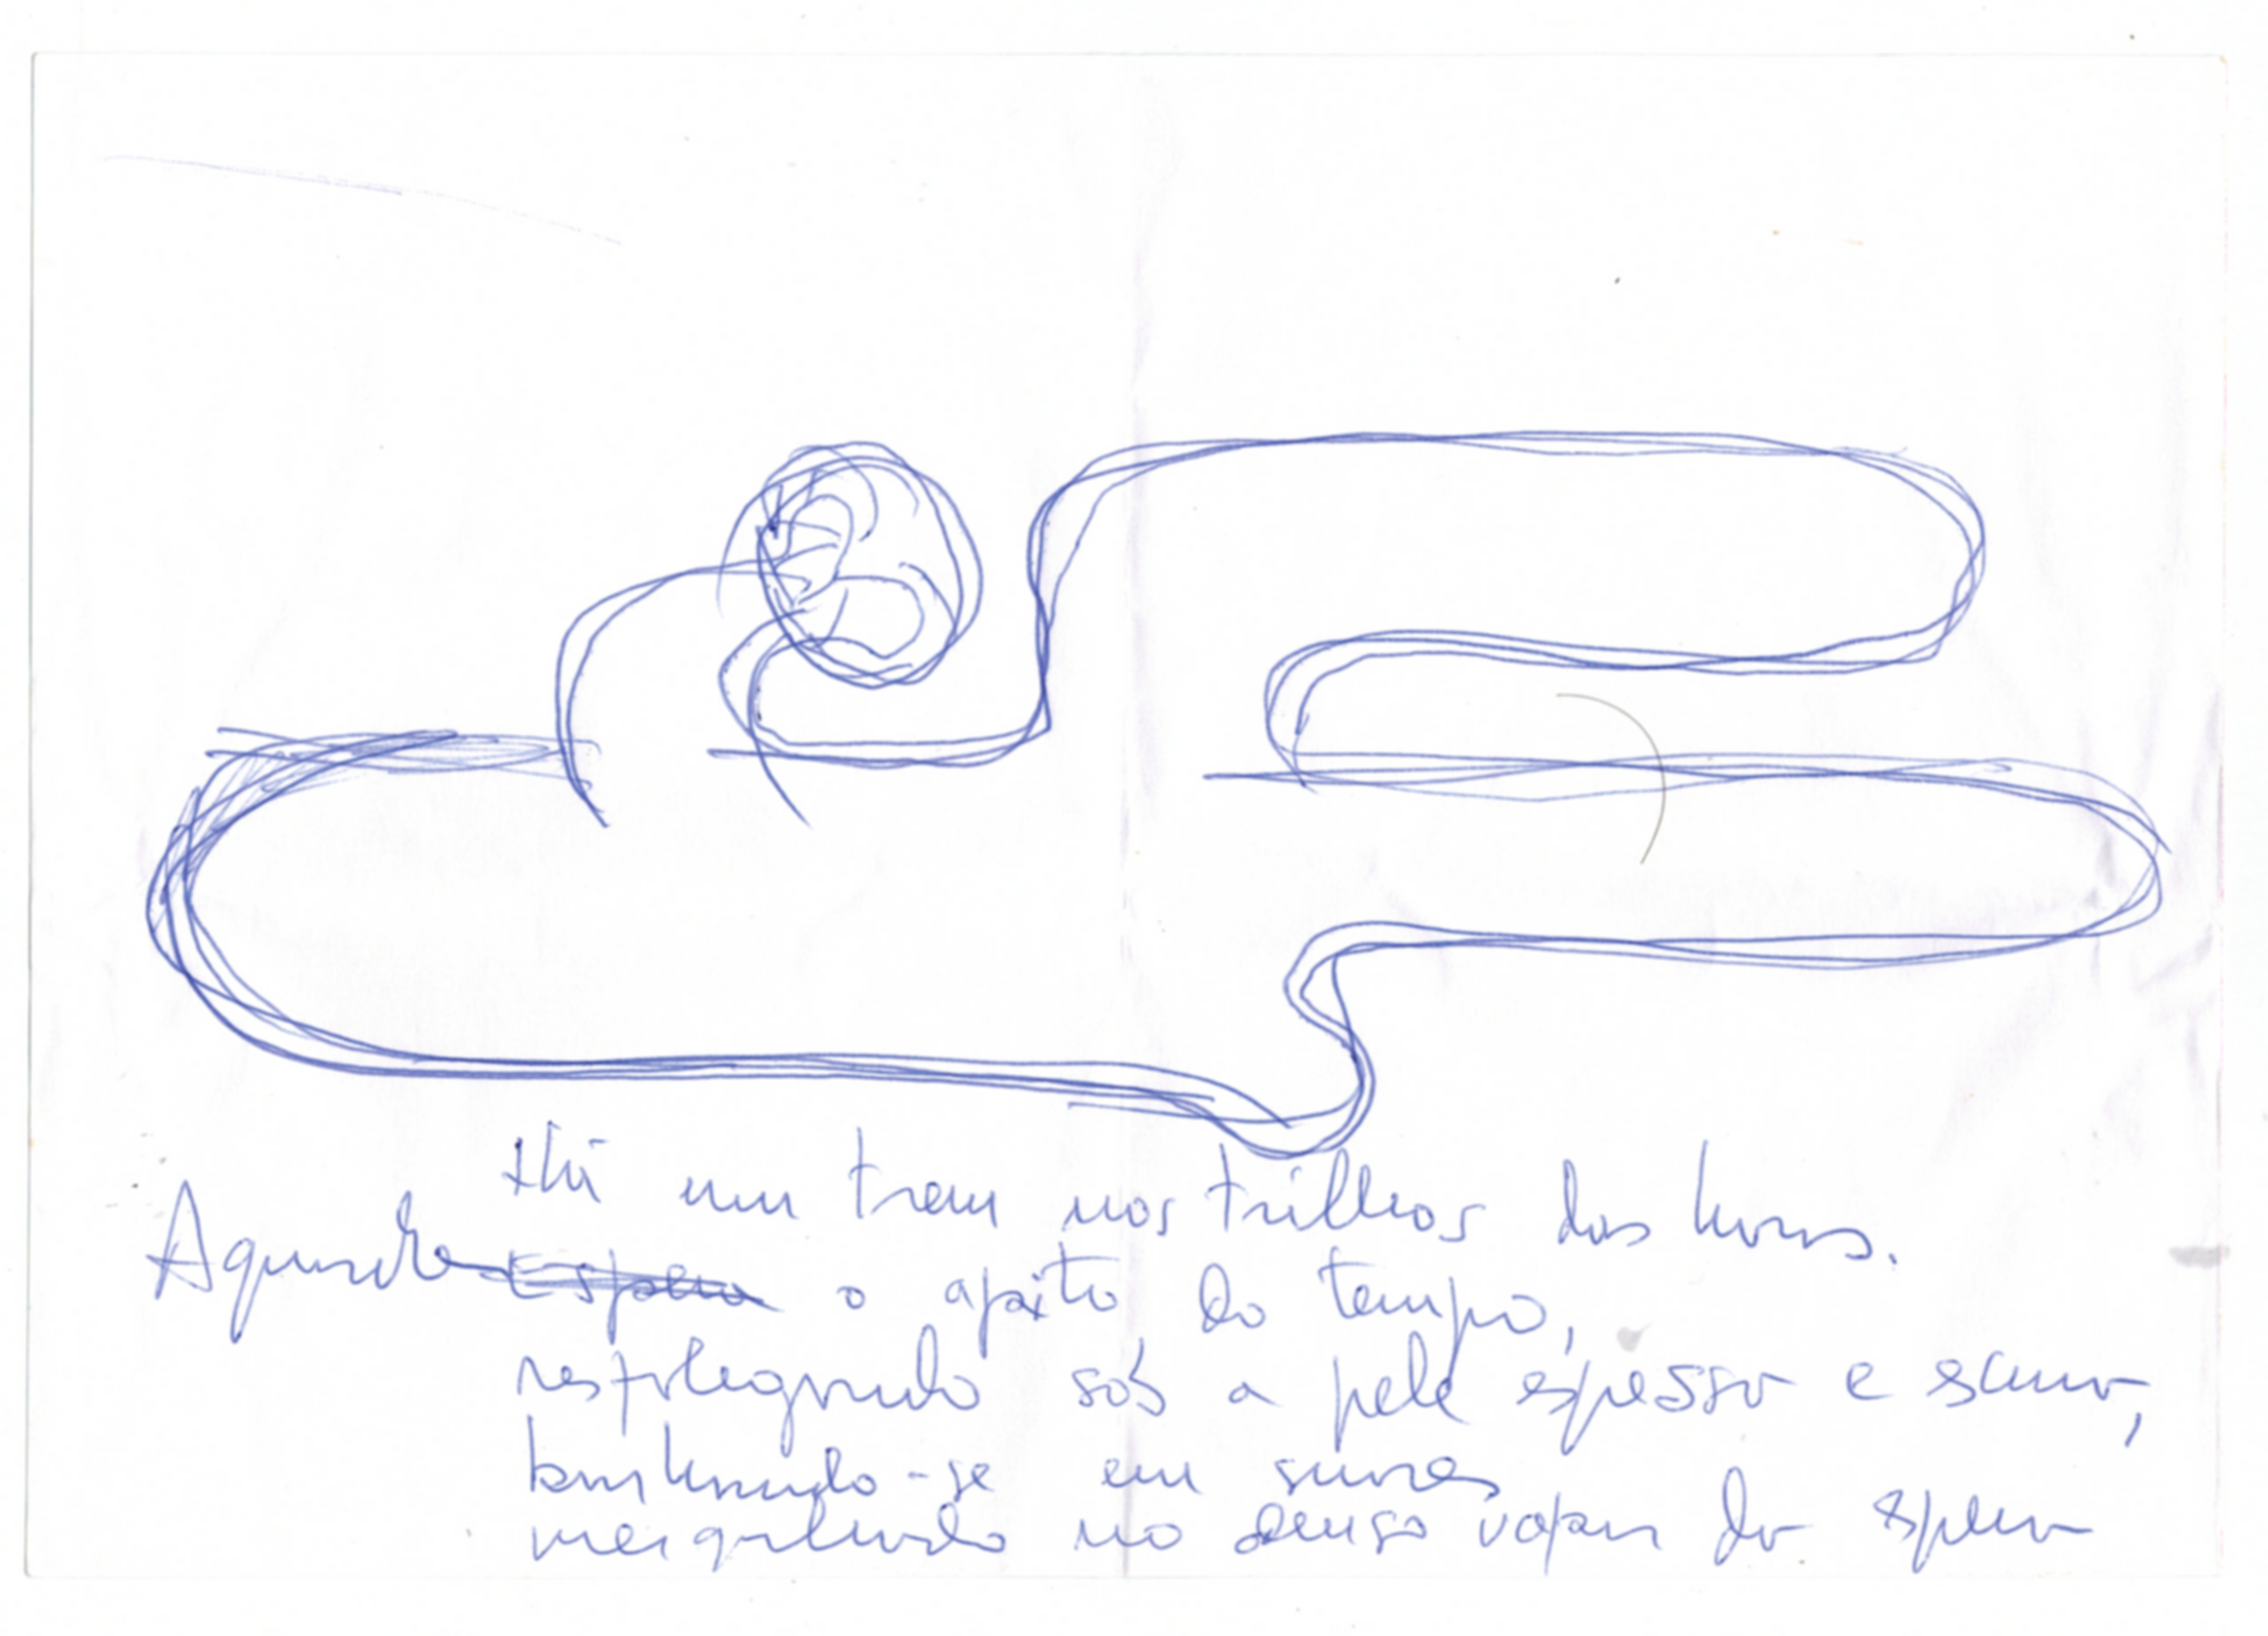 Há um trem nos trilhos das horas.
Aguarda Espera o apito do tempo,
resfolegando sob a pele espessa e escura,
banhando-se em suores
mergulhado no denso vapor da espera